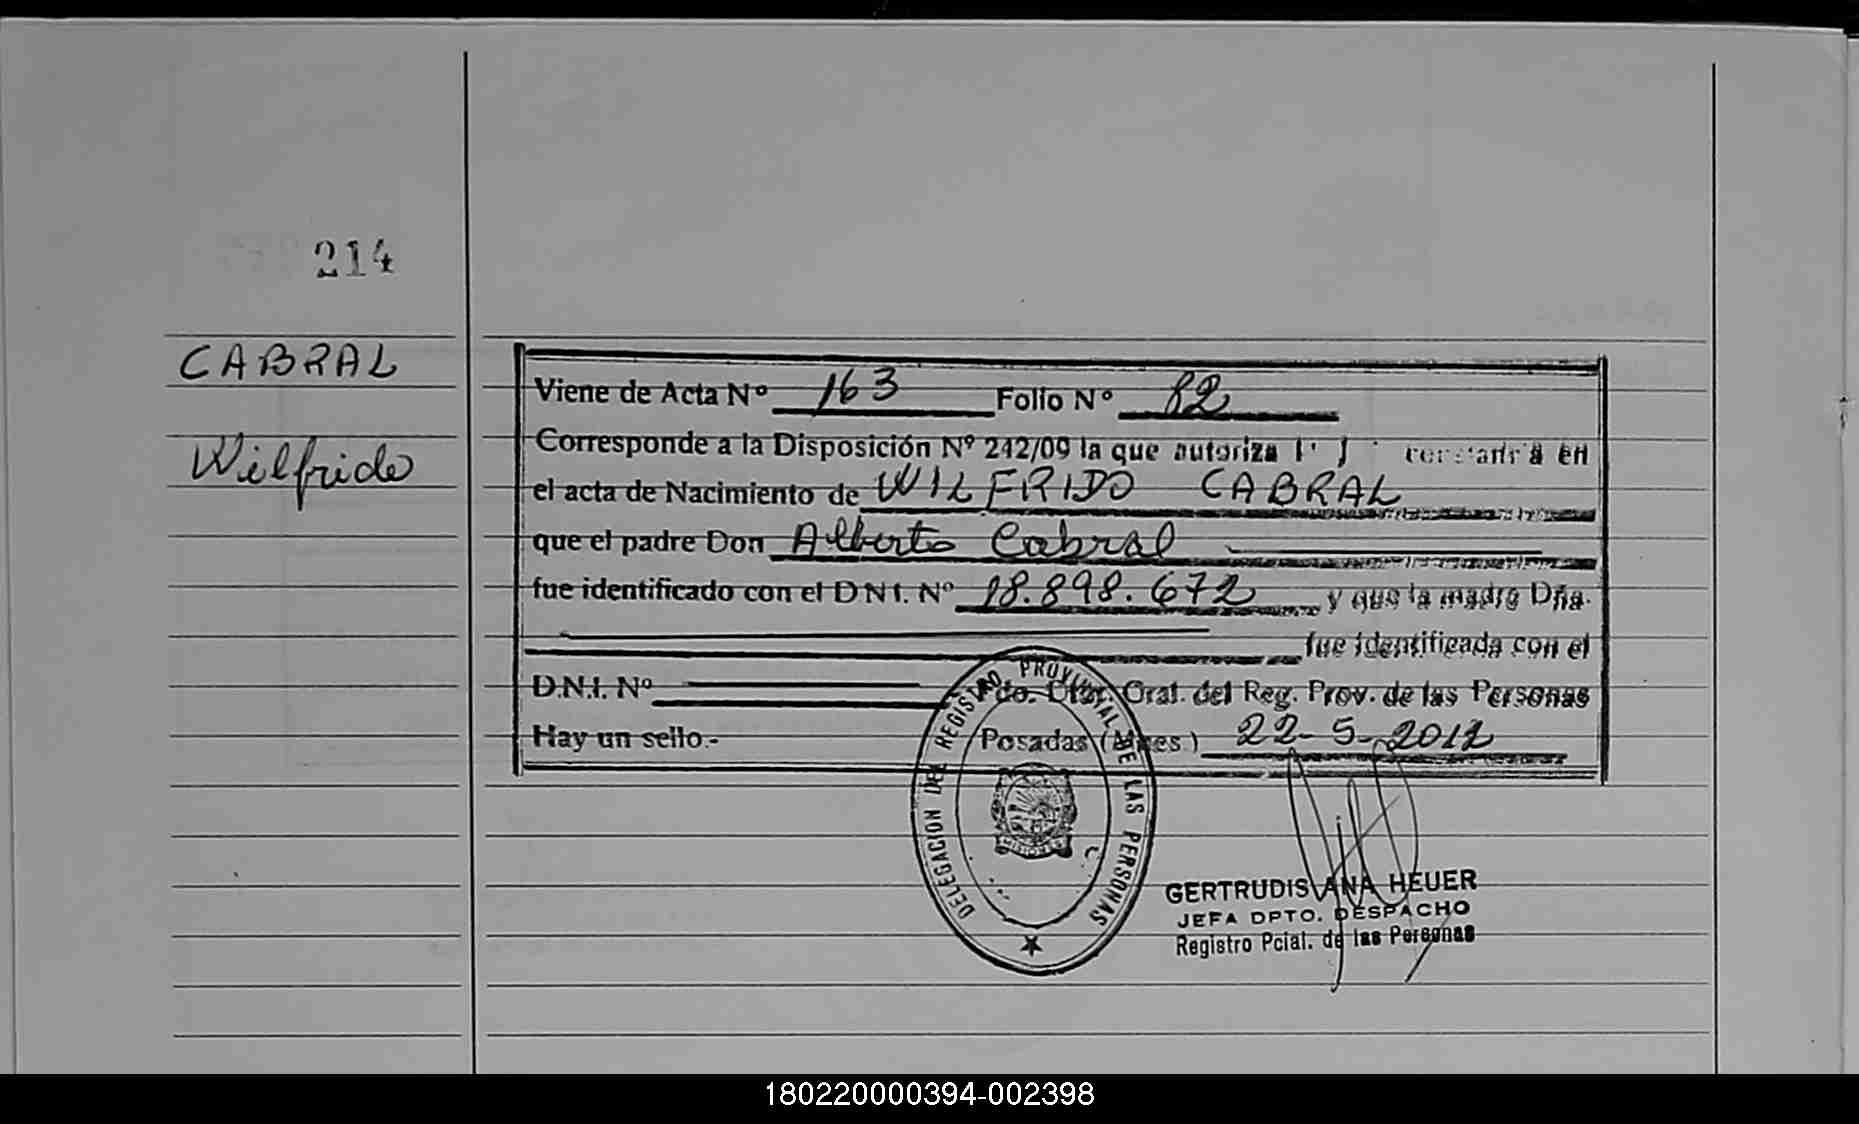 214
CABRAL
Wilfrido
Viene de Acta Nº 163 Folio Nº 82
Corresponde a la Disposición Nº 242/09 la que autoriza en
el acta de Nacimiento de WILFRIDO CABRAL
que el padre Don Alberto Cabral
fue identificado con el D N I. Nº 18.898.672 y que la madre Dña.
fue identificada con el
D.N.I. Nº Gral. del Reg. Prov. de las Personas
Hay un sello.- Posadas (Mnes) 22-5-2012
DELEGACION DEL REGISTRO PROVINCIAL DE LAS PERSONAS
GERTRUDIS ANA HEUER
JEFA DPTO. DESPACHO
Registro Pcial. de las Personas
180220000394-002398